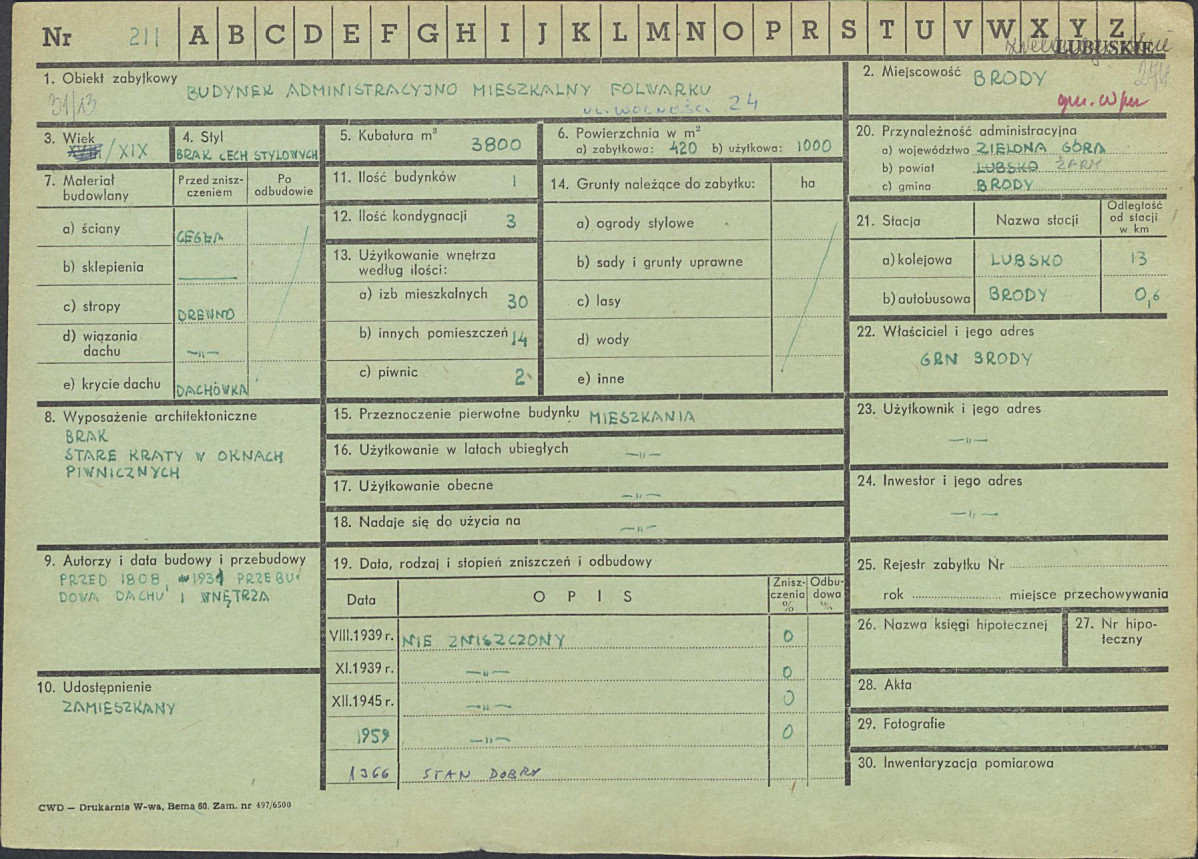 Nr 211 A B C D E F G H I J K L M N O P R S T U V W X Y Z
LUBUSKIE
1. Obiekt zabytkowy
31/13
BUDYNEK ADMINISTRACYJNO MIESZKALNY FOLWARKU
UL. WOLNOŚCI 24
2. Miejscowość BRODY
3. Wiek
XVIII/XIX
4. Styl
BRAK CECH STYLOWYCH
5. Kubatura m³
3800
6. Powierzchnia w m²
a) zabytkowa: 420 b) użytkowa: 1000
20. Przynależność administracyjna
a) województwo ZIELONA GÓRA
b) powiat LUBSKO ŻARY
c) gmina BRODY
7. Materiał budowlany
Przed zniszczeniem
Po odbudowie
a) ściany CEGŁA
b) sklepienia —
c) stropy DREWNO
d) wiązania dachu —„—
e) krycie dachu DACHÓWKA
11. Ilość budynków 1
12. Ilość kondygnacji 3
13. Użytkowanie wnętrza
według ilości:
a) izb mieszkalnych 30
b) innych pomieszczeń 14
c) piwnic 2
14. Grunty należące do zabytku: ha
a) ogrody stylowe
b) sady i grunty uprawne
c) lasy
d) wody
e) inne
21. Stacja Nazwa stacji Odległość od stacji w km
a) kolejowa LUBSKO 13
b) autobusowa BRODY 0,6
22. Właściciel i jego adres
GRN BRODY
8. Wyposażenie architektoniczne
BRAK
STARE KRATY W OKNACH
PIWNICZNYCH
15. Przeznaczenie pierwotne budynku MIESZKANIA
16. Użytkowanie w latach ubiegłych —„—
17. Użytkowanie obecne —„—
18. Nadaje się do użycia na —„—
23. Użytkownik i jego adres
—„—
24. Inwestor i jego adres
—„—
9. Autorzy i data budowy i przebudowy
PRZED 1808 W 1931 PRZEBU-
DOWA DACHU I WNĘTRZA
10. Udostępnienie
ZAMIESZKANY
19. Data, rodzaj i stopień zniszczeń i odbudowy
Data OPIS Zniszczenia % Odbudowa %
VIII.1939 r. NIE ZNISZCZONY 0
XI.1939 r. —„— 0
XII.1945 r. —„— 0
1959 —„— 0
1966 STAN DOBRY
25. Rejestr zabytku Nr
rok miejsce przechowywania
26. Nazwa księgi hipotecznej
27. Nr hipo-
teczny
28. Akta
29. Fotografie
30. Inwentaryzacja pomiarowa
CWD — Drukarnia W-wa, Bema 60. Zam. nr 497/6500